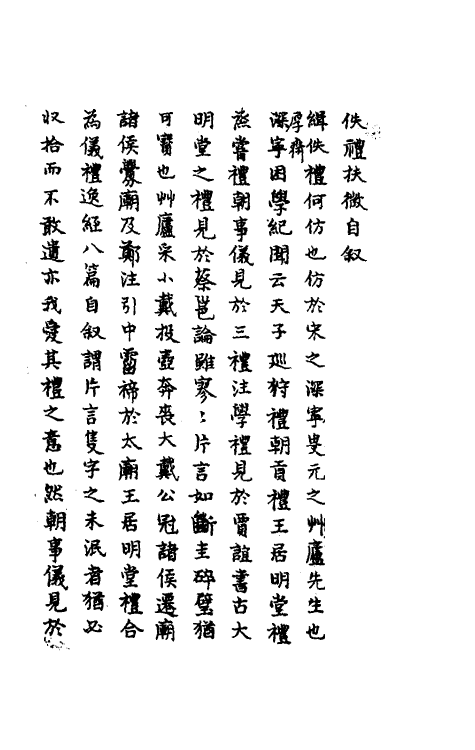 佚禮扶微自叙
緝佚禮何仿也仿於宋之深寧叟元之艸廬先生也
厚齋
深寧困學紀聞云天子巡狩禮朝貢禮王居明堂禮
烝嘗禮朝事儀見於三禮注學禮見於賈誼書古大
明堂之禮見於蔡邕論雖寥〻片言如斷圭碎璧猶
可寶也艸廬采小戴投壺奔喪大戴公冠諸侯遷廟
諸侯釁廟及鄭注引中霤禘於太廟王居明堂禮合
為儀禮逸經八篇自叙謂片言隻字之未泯者猶必
收拾而不敢遺亦我愛其禮之意也然朝事儀見於